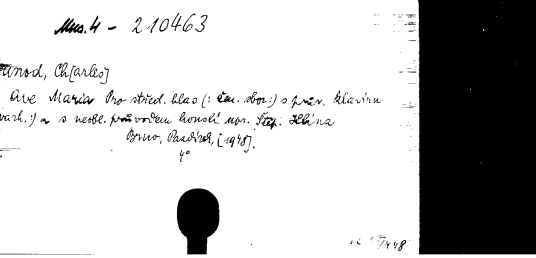 Mus. 4 - 210463
unod, Ch[arles]
Ave Maria Pro střed. hlas (: žen. sbor :) s prův. klavíru
varh. :) a s neobl. průvodem houslí upr. Štěp. Hlína
Brno, Pazdírek, [1948].
4°